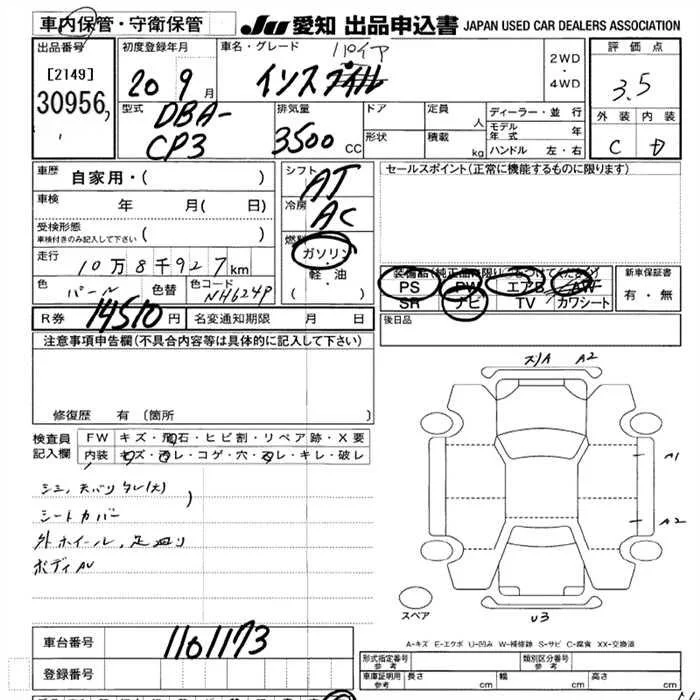 車内保管・守衛保管 JU 愛知 出品申込書 JAPAN USED CAR DEALERS ASSOCIATION
出品番号
[2149]
30956
初度登録年月
20 9 月
車名・グレード
インスパイア
2WD
・
4WD
評価点
3.5
外装 内装
C D
型式
DBA-
CP3
排気量
3500 CC
ドア
形状
定員 人
積載 kg
ディーラー・並行
モデル年式 年
ハンドル 左・右
車歴 自家用・( )
車検 年 月( 日)
受検形態
車検付きのみ記入して下さい ( )
走行 10万8千927km
色 パール 色替 色コード NH624P
シフト AT
冷房 AC
燃料
ガソリン
・
軽油
( )
セールスポイント(正常に機能するものに限ります)
装備品(純正品に限り○をつけてください)
PS PW エアB AW
SR ナビ TV カワシート
新車保証書
有・無
R券 14510円 名変通知期限 月 日
後日品
注意事項申告欄(不具合内容等は具体的に記入して下さい)
修復歴 有 (箇所
検査員
記入欄
FW キズ・飛石・ヒビ割・リペア跡・X要
内装 キズ・ヨレ・コゲ・穴・スレ・キレ・破レ
シミ、天バリタレ(大)
シートカバー
外ホイール、足廻り
ボディAU
A2
A1
A2
U3
スペア
A-キズ E-エクボ U-凹み W-補修跡 S-サビ C-腐食 XX-交換済
車台番号 1101173
登録番号
形式指定番号
参考
類別区分番号
参考
車庫証明用
参考
長さ cm 幅 cm 高さ cm